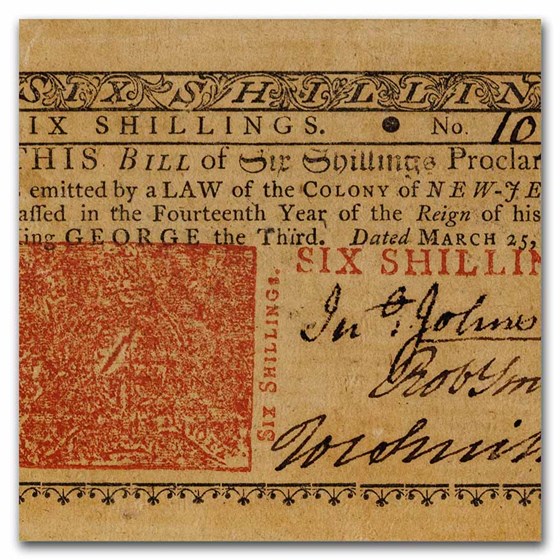 SIX SHILLIN
IX SHILLINGS. No. 10
THIS BILL of Six Shillings Proclar
emitted by a LAW of the COLONY of NEW-JE
assed in the Fourteenth Year of the Reign of his
ing GEORGE the Third. Dated MARCH 25,
SIX SHILLIN
SIX SHILLINGS.
Jnº. Johns
Robt Sm